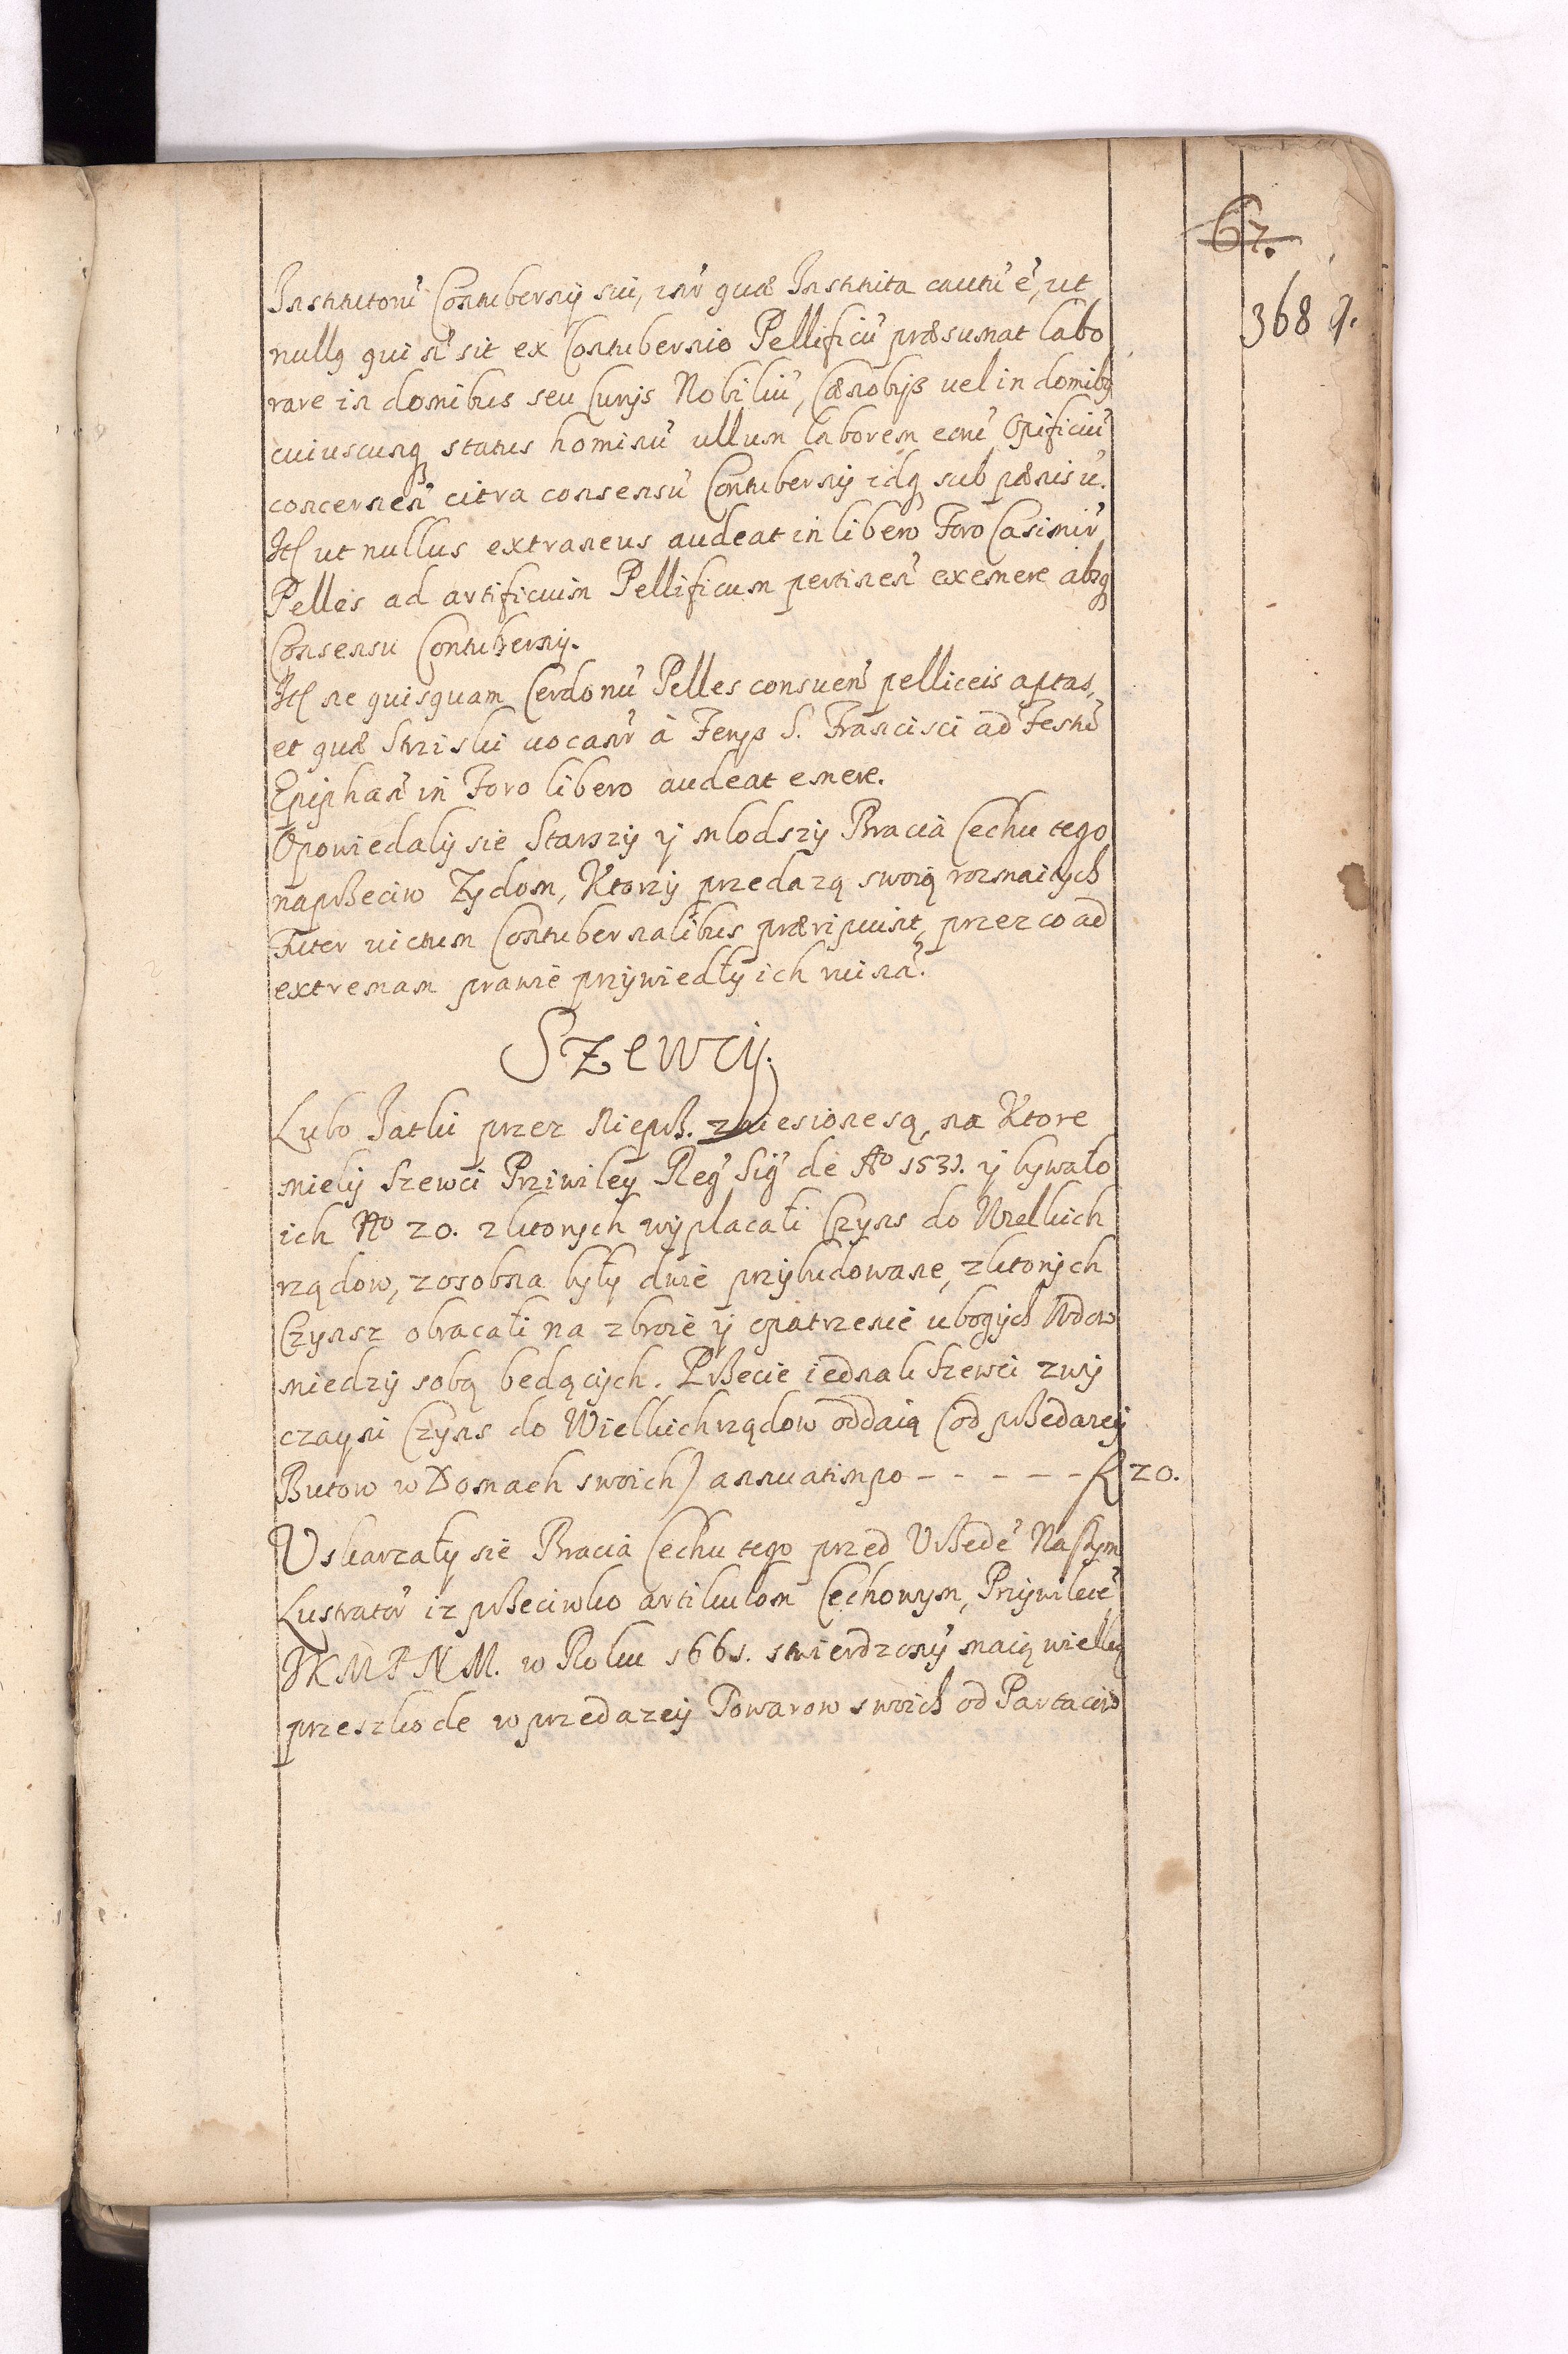 67.
368 q.
Institutorũ Contubernij sui, intr̃ quæ Instituta cautũ ẽ, ut
nullq qui ñ sit ex Contubernio Pellificũ præsumat labo
rare in domibus seu Curijs Nobiliũ, Cænobijs vel in domibq
cuiuscunq status hominũ ullum laborem eorũ Opificiũ
concerneñ citra consensũ Contubernij idq sub pænis ũ.
Itẽ ut nullus extraneus audeat in libero Foro Casimir̃
Pelles ad artificium Pellificum pertineñ exemere absq
Consensu Contubernij.
Itẽ ne quisquam Cerdonũ Pelles consueñ pelliceis aptas,
et quæ Strziski vocanr̃ à Temp S. Francisci ad Festũ
Epiphañ in Foro libero audeat emere.
Opowiedaly sie Starszy y mlodszy Bracia Cechu tego
naprzeciw Zydom, Ktorzy przedazą swoią rozmaitych
Futer victum Contubernalibus præripiunt, przez co ad
extremam prawie przywiedły ich ruinã.
Szewcy.
Lubo Jatki przez Niepß. zniesione są, na Ktore
mieli Szewci Priwiley Reg̃ Sig̃ de Aº 1531. y bywało
ich Nº 20. z ktorych wypłacali Czyns do Wielkich
rządow, z osobna były dwie przybudowane, z ktorych
Czynsz obracali na zbroie y opatrzenie ubogich Wdow
miedzy sobą bedących. Przecie iednak Szewci zwy
czayni Czyns do Wielkichrządow oddaią (od przedarzy
Butow w Domach swoich) annuatim po - - - - - - - f 20.
Uskarzały sie Bracia Cechu tego przed Urzedẽ Naszym
Lustrator̃ iz przeciwko artikulom Cechowym, Przywileiẽ
JKMPNM. w Roku 1661. stwierdzonỹ maią wielką
przeszkode w przedazy Towarow swoich od Partacow